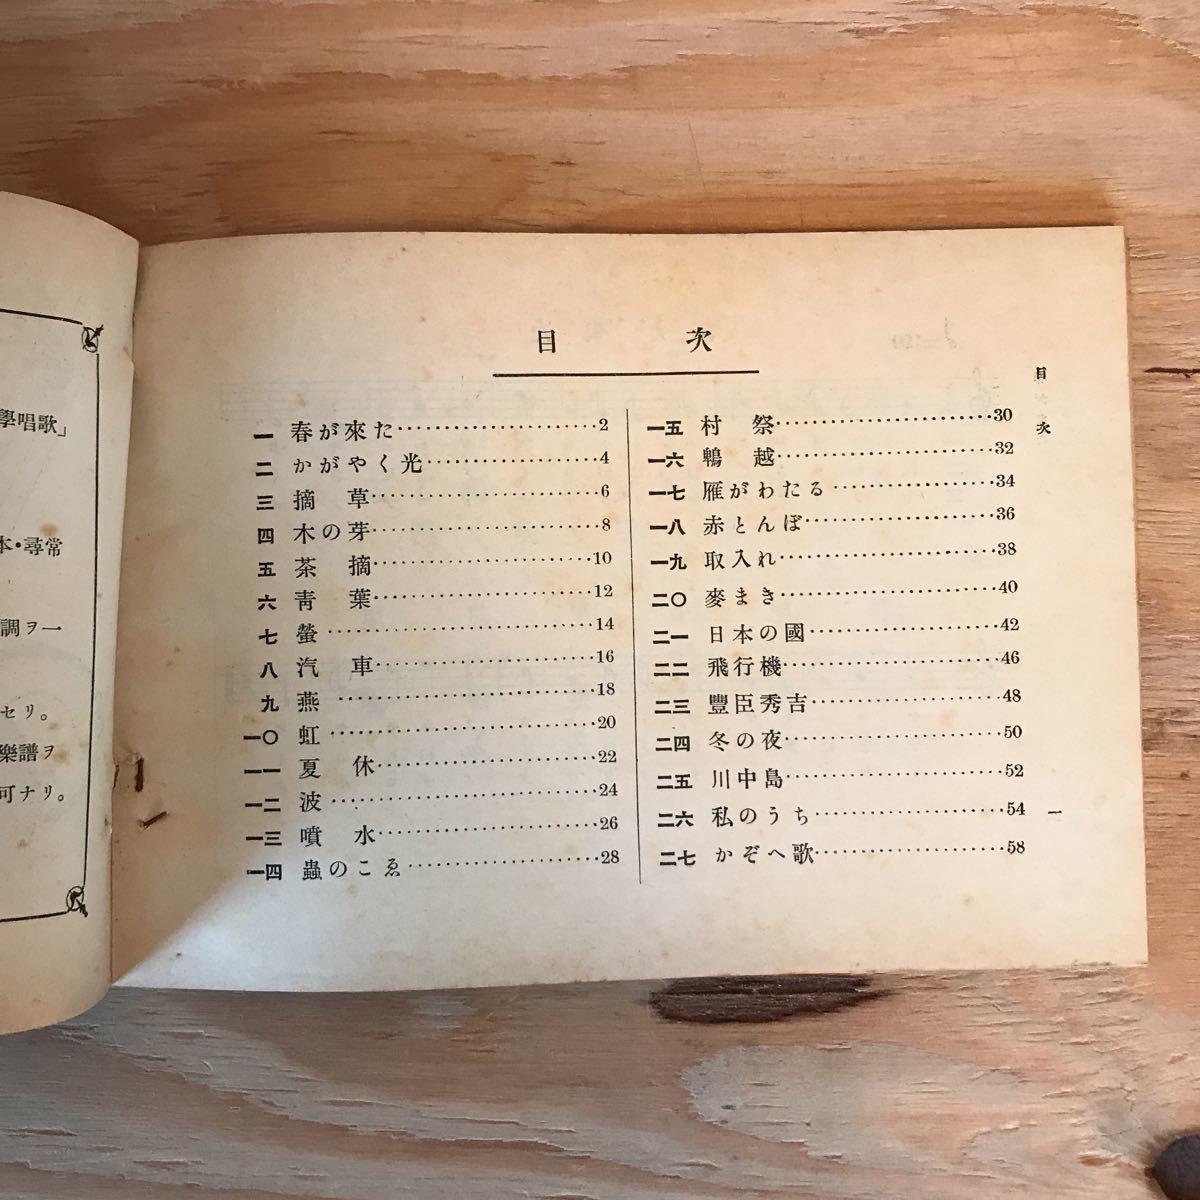 學唱歌」
本・尋常
調ヲ一
セリ。
樂譜ヲ
可ナリ。
目次
一 春が來た 2
二 かがやく光 4
三 摘草 6
四 木の芽 8
五 茶摘 10
六 靑葉 12
七 螢 14
八 汽車 16
九 燕 18
一〇 虹 20
一一 夏休 22
一二 波 24
一三 噴水 26
一四 蟲のこゑ 28
一五 村祭 30
一六 鵯越 32
一七 雁がわたる 34
一八 赤とんぼ 36
一九 取入れ 38
二〇 麥まき 40
二一 日本の國 42
二二 飛行機 46
二三 豐臣秀吉 48
二四 冬の夜 50
二五 川中島 52
二六 私のうち 54
二七 かぞへ歌 58
目次
一